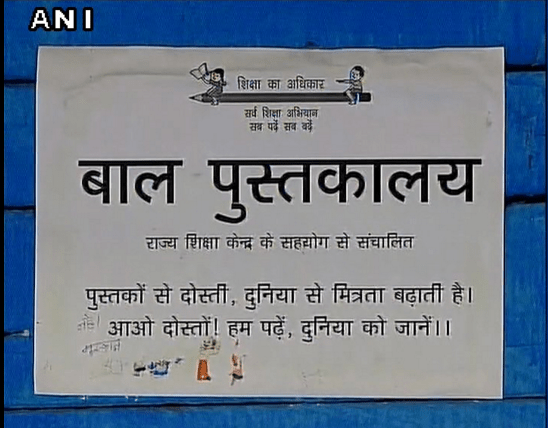 ANI
शिक्षा का अधिकार
सर्व शिक्षा अभियान
सब पढ़ें सब बढ़ें
बाल पुस्तकालय
राज्य शिक्षा केन्द्र के सहयोग से संचालित
पुस्तकों से दोस्ती, दुनिया से मित्रता बढ़ाती है।
आओ दोस्तों! हम पढ़ें, दुनिया को जानें।।
मुस्कान